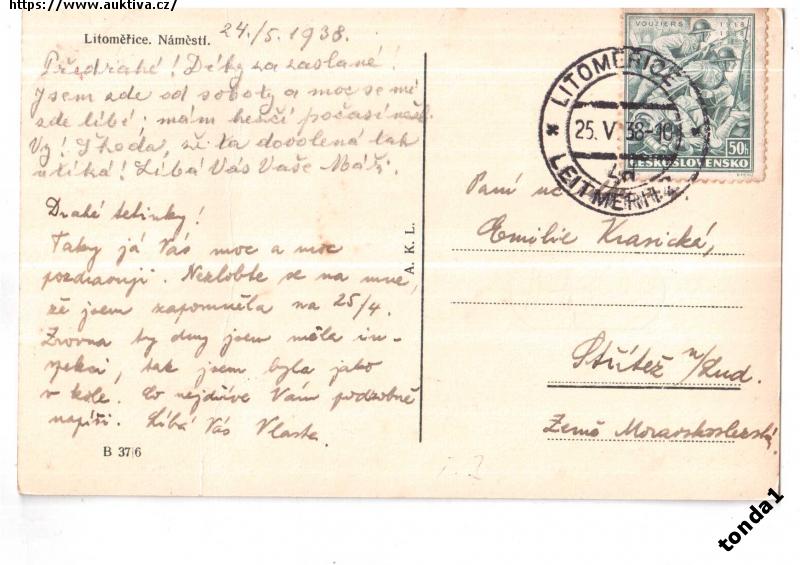 https://www.auktiva.cz/
Litoměřice. Náměstí.
24./5. 1938.
Předrahé! Díky za zaslané!
Jsem zde od soboty a moc se mi
zde líbí. mám hezčí počasí než
Vy! Škoda, že ta dovolená tak
utíká! Líbá Vás Vaše Mář.
Drahé tetinky!
Taky já Vás moc a moc
pozdravuji. Nezlobte se na mne,
že jsem zapomněla na 25/4.
Zrovna ty dny jsem měla in-
spekci, tak jsem byla jako
v kole. Co nejdříve Vám podrobně
napíši. Líbá Vás Vlasta.
B 37/6
A. K. L.
VOUZIERS 1918 1938
50h
ČESKOSLOVENSKO
LITOMĚŘICE
25. V. 38-10
LEITMERITZ
Paní uč.
Emilie Krasická,
Střítež n/Lud.
Země Moravskoslezská.
tonda1